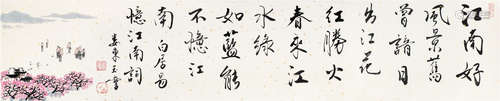 江南好
風景舊
曾諳日
出江花
紅勝火
春來江
水綠
如藍能
不憶江
南 白居易
憶江南詞